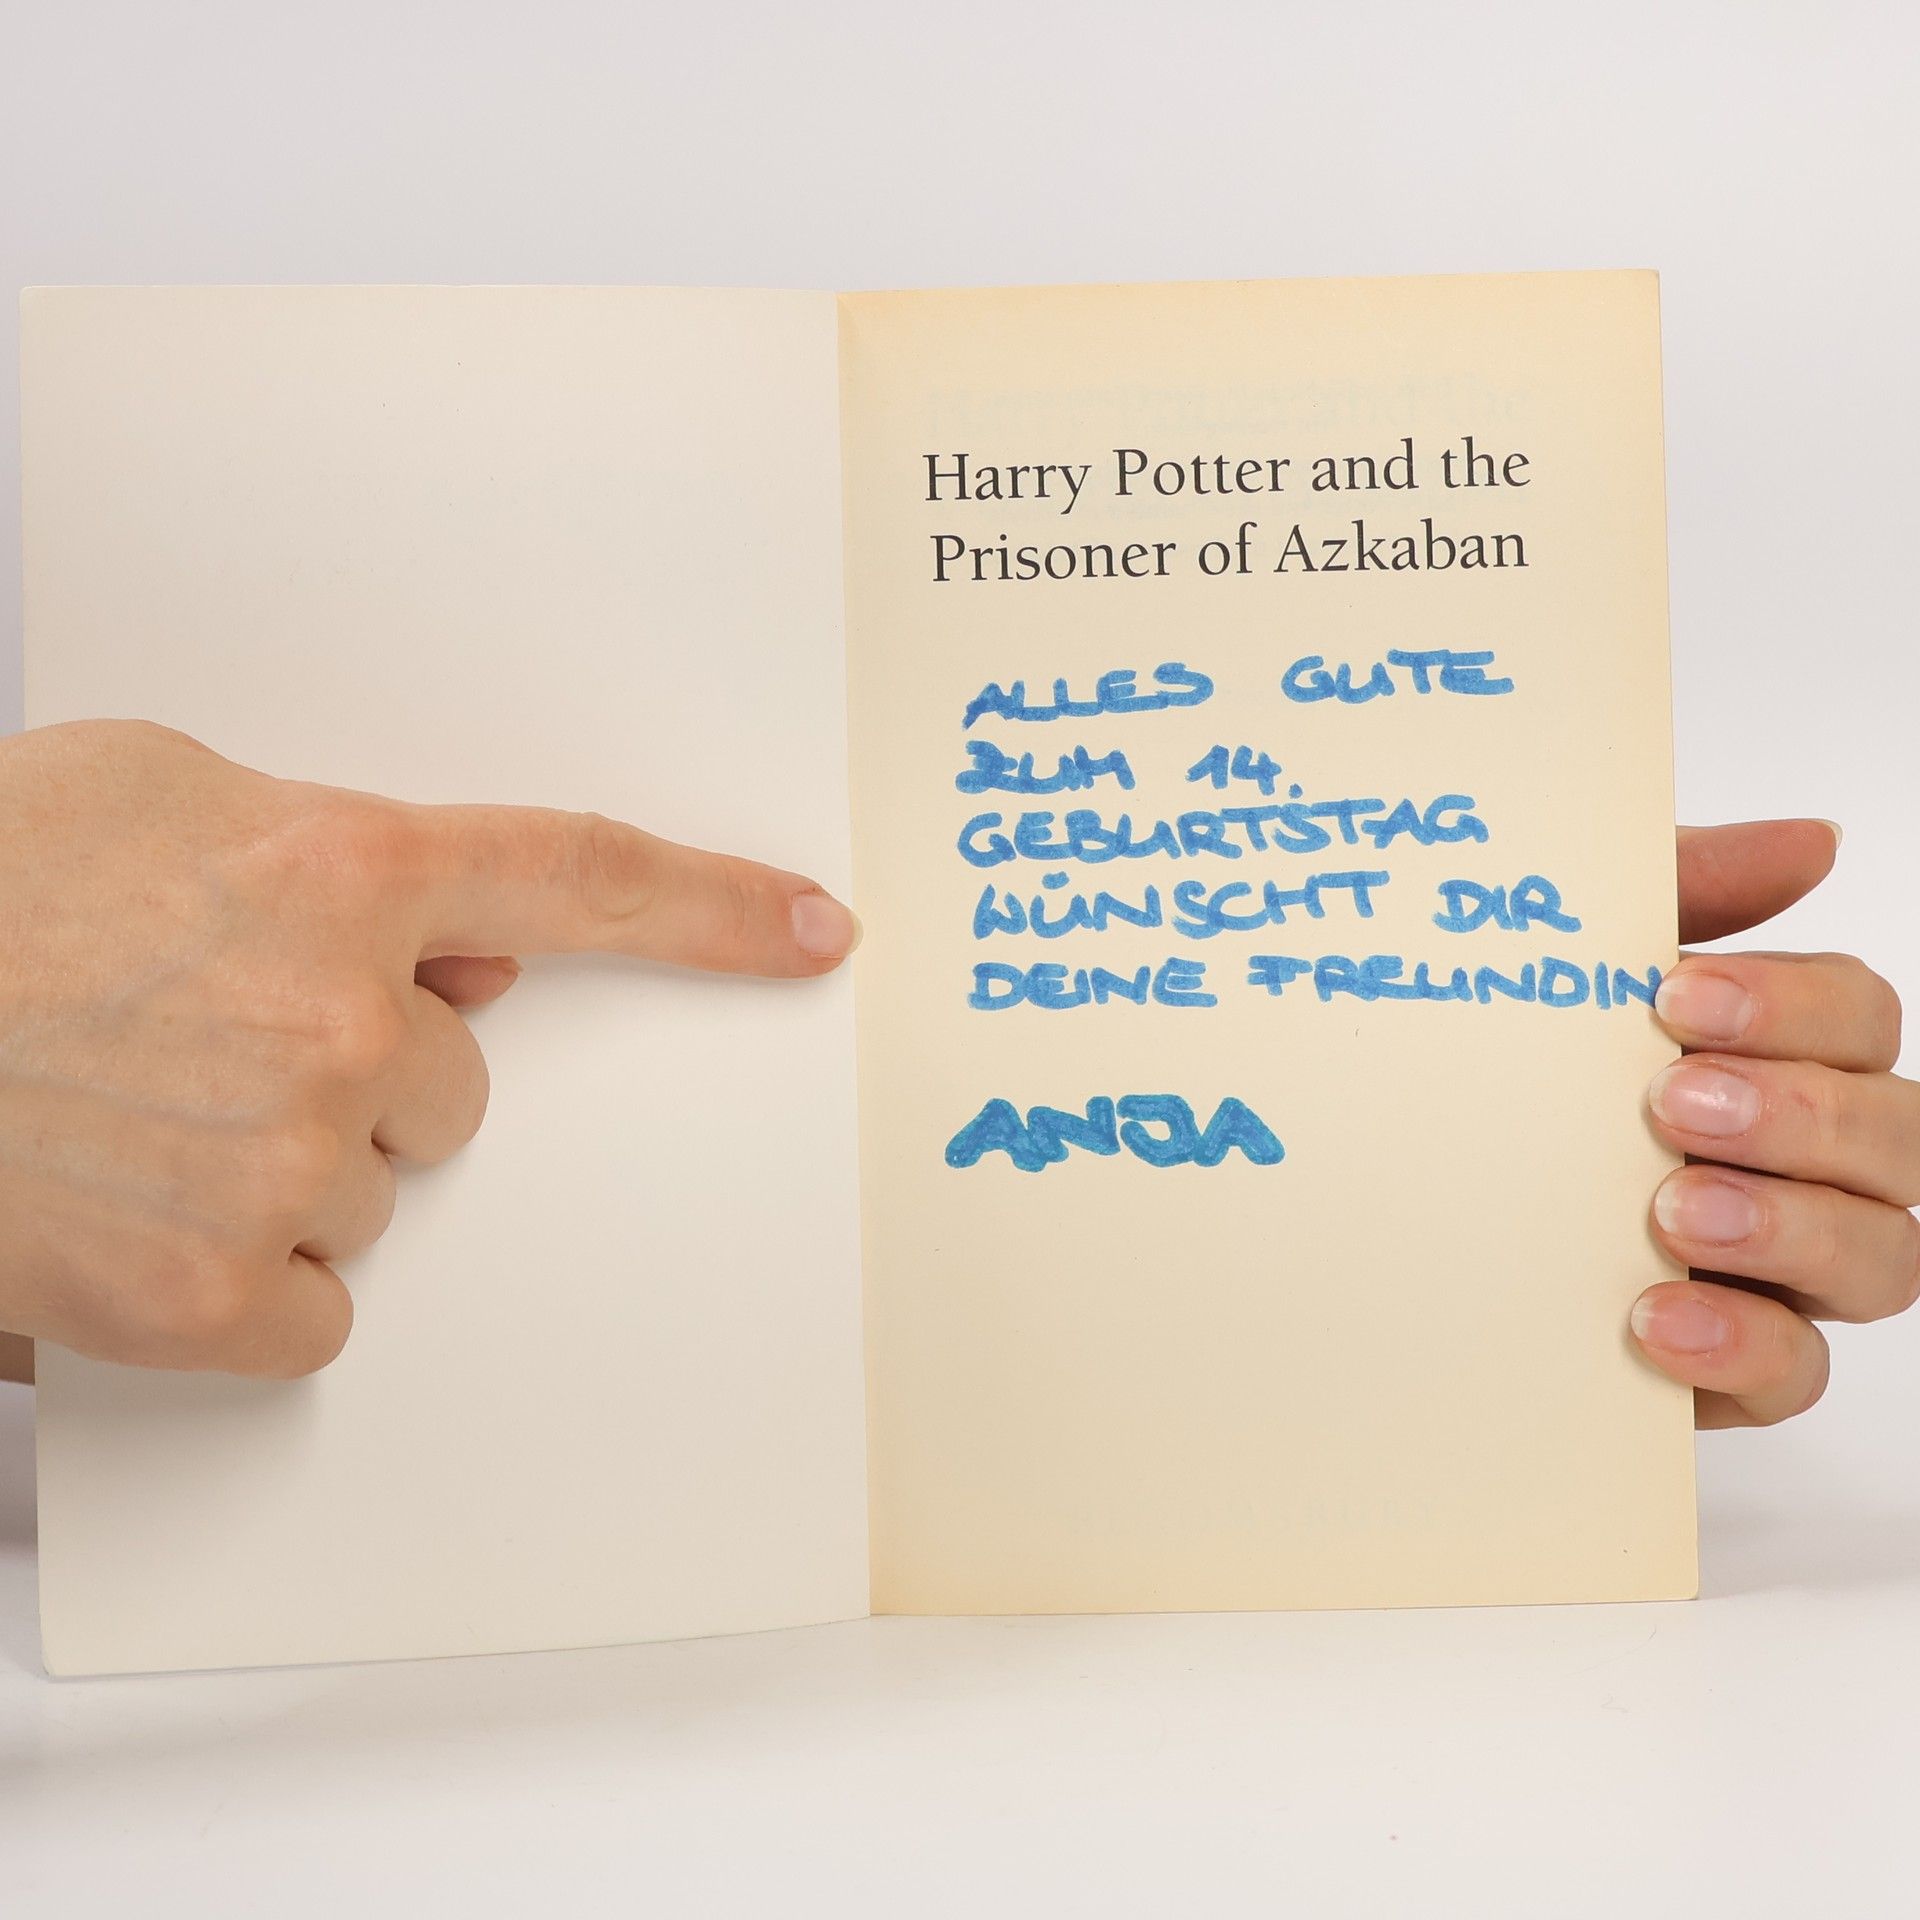 Harry Potter and the
Prisoner of Azkaban
ALLES GUTE
ZUM 14.
GEBURTSTAG
WÜNSCHT DIR
DEINE FREUNDIN
ANJA